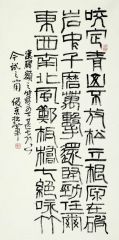 咬定青山不放松立根原在破
岩中千磨萬擊還堅勁任爾
東西南北風鄭板橋七絕咏竹